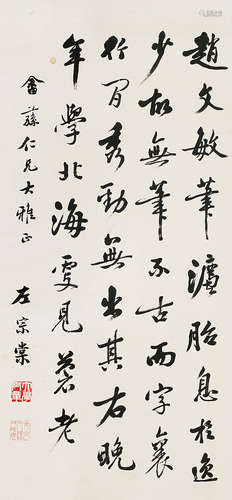 趙文敏筆瀍胎息於逸
少故無筆不古而字裏
行間秀勁無出其右晚
年學北海雯見蒼老
畲蓀仁兄大雅正
左宗棠